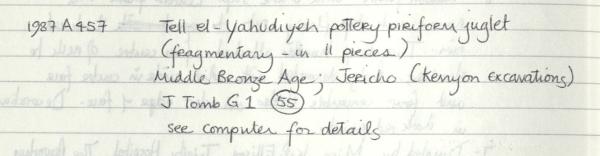 1987 A 457 Tell el-Yahudiyeh pottery piriform juglet
(fragmentary - in 11 pieces)
Middle Bronze Age; Jericho (Kenyon Excavations)
J Tomb G 1 (55)
see computer for details